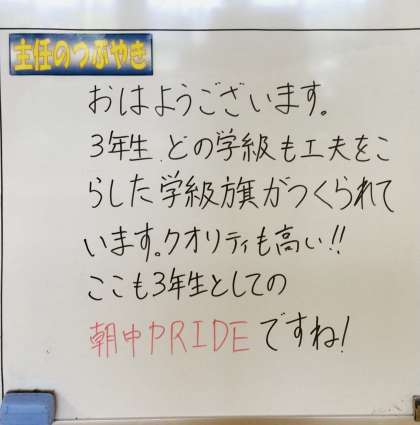 主任のつぶやき
おはようございます。
3年生、どの学級も工夫をこ
らした学級旗がつくられて
います。クオリティも高い!!
ここも3年生としての
朝中PRIDEですね!